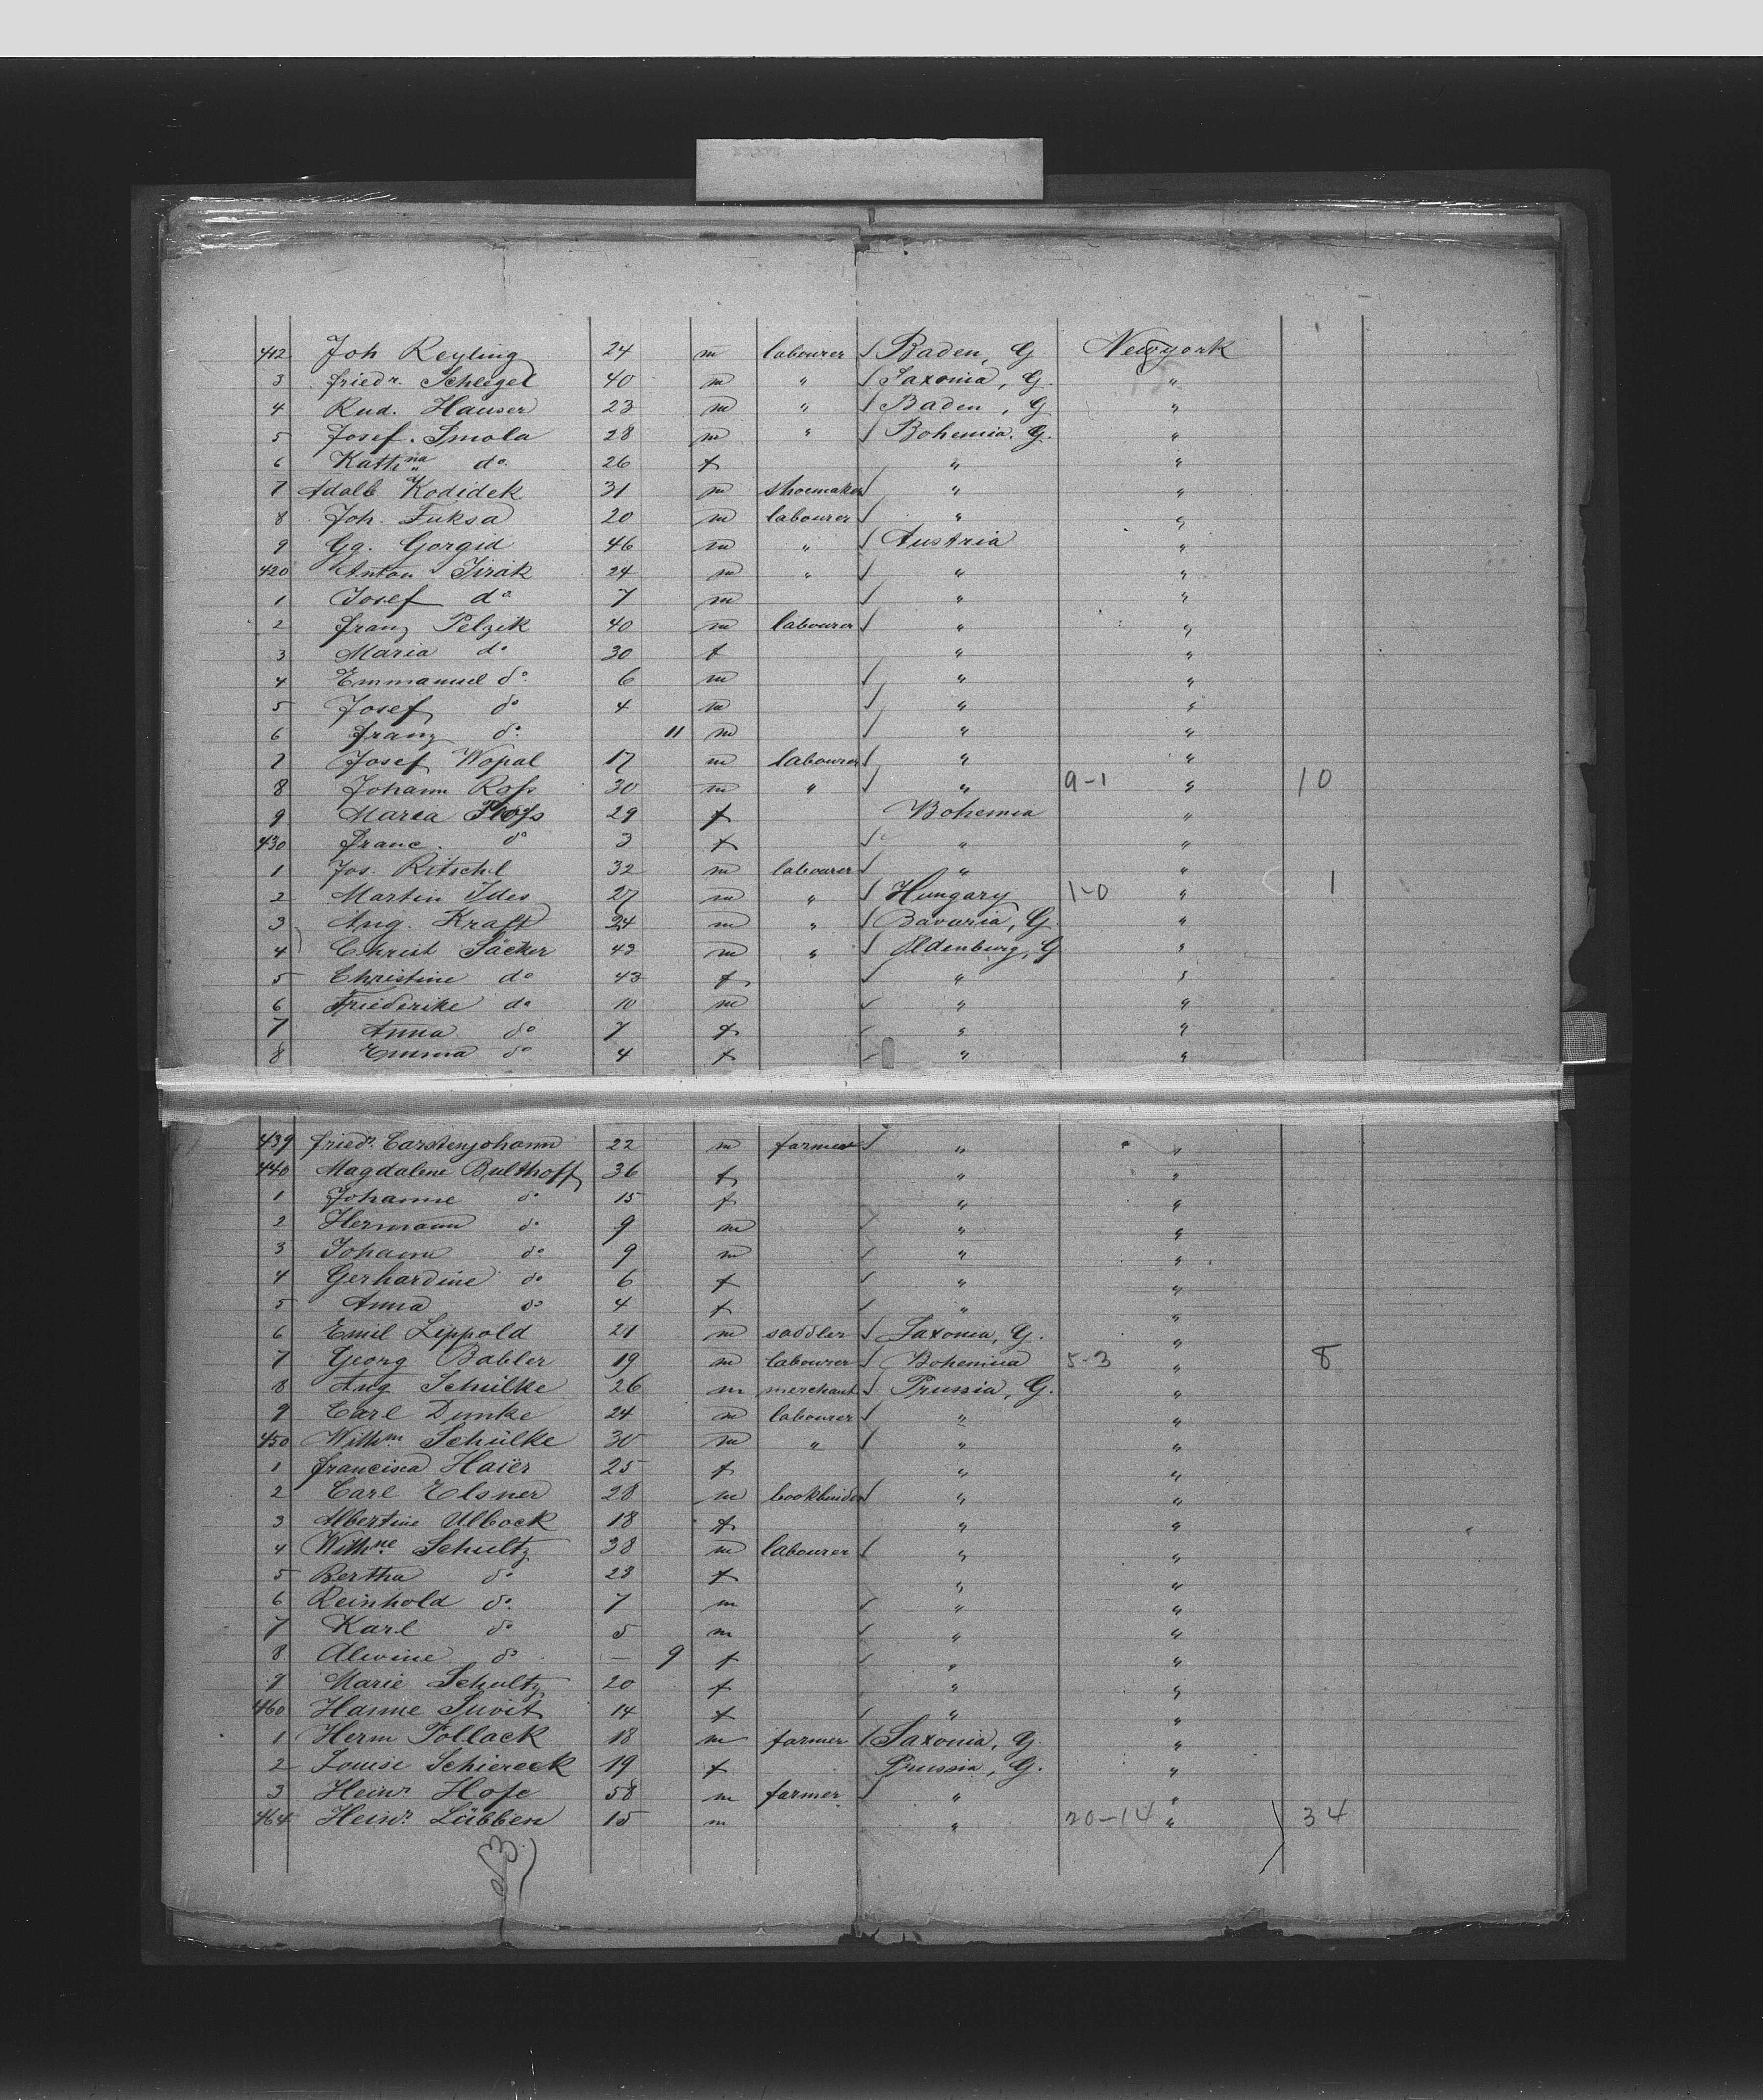 412 Joh Reyling 24 m labourer √ Baden, G. Newyork
3 friedr. Schlegel 40 m " √ Saxonia, G. "
4 Rud. Hauser 23 m " √ Baden, G "
5 Josef. Smola 28 m " √ Bohemia. G. "
6 Kathna do. 26 f " "
7 Adalb Kodidek 31 m shoemaker √ " "
8 Joh. Fuksa 20 m labourer √ " "
9 Gg. Gorgid 46 m " √ Austria "
420 Anton Jirak 24 m " √ " "
1 Josef do 7 m √ " "
2 franz Pelzek 40 m labourer √ " "
3 Maria do 30 f " "
4 Emmanuel do. 6 m √ " "
5 Josef do 4 m √ " "
6 franz do. 11 m √ " "
7 Josef Wopal 17 m labourer √ " "
8 Johann Rofs 30 m " √ " 9-1 " 10
9 Maria 29 f Bohemia "
430 franc. do 3 f √ " "
1 Jos. Ritschl 32 m labourer √ " "
2 Martin Ides 27 m " √ Hungary 1-0 " 1
3 Aug. Kraft 24 m " √ Bavaria, G "
4 Christ Säcker 43 m " √ Oldenburg, G "
5 Christine do 43 f √ " "
6 Friederike do 10 m √ " "
7 Anna do 7 f √ " "
8 Emma do 4 f √ " "
439 friedr. Carstenjohann 22 m farmer √ " "
440 Magdalene Bulthoff 36 f " "
1 Johanne do 15 f " "
2 Hermann do 9 m √ " "
3 Johann do 9 m √ " "
4 Gerhardine do 6 f √ " "
5 Anna do 4 f √ " "
6 Emil Lippold 21 m saddler √ Saxonia, G. "
7 Georg Babler 19 m labourer √ Bohemia 5-3 " 8
8 Aug Schülke 26 m merchant √ Prussia, G. "
9 Carl Dumke 24 m labourer √ " "
450 Wilhm Schülke 30 m " √ " "
1 francisca Haier 25 f " "
2 Carl Elsner 28 m bookbinder √ " "
3 Albertine Ulbock 18 f " "
4 Wilhne Schultz 38 m labourer √ " "
5 Bertha do 28 f " "
6 Reinhold do. 7 m √ " "
7 Karl do 5 m √ " "
8 Alwine do — 9 f √ " "
9 Marie Schultz 20 f " "
460 Hanne 14 f √ " "
1 Herm Pollack 18 m farmer √ Saxonia, G. "
2 Louise Schiereck 19 f Prussia, G. "
3 Heinr Hofe 58 m farmer √ " "
464 Heinr. Lübben 15 m " 20-14 " 34